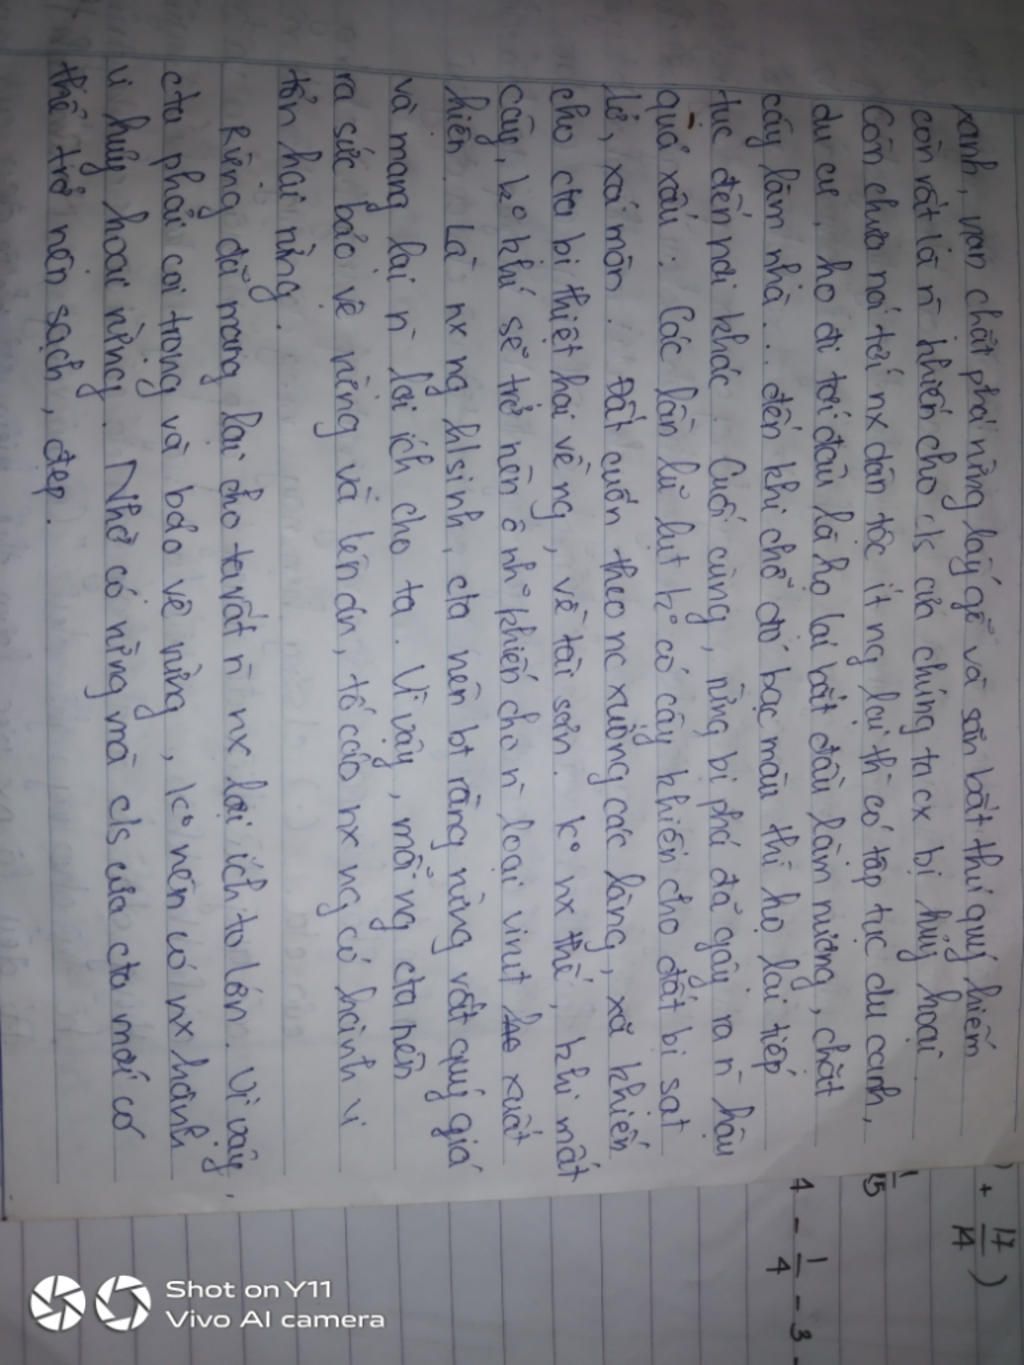 xanh, nạn chặt phá rừng lấy gỗ và săn bắt thú quý hiếm
còn rất là n̄ khiến cho c/s của chúng ta cx bị hủy hoại.
Còn chưa nói tới nx dân tộc ít ng lại th̀ có tập tục du canh,
du cư, họ đi tới đâu là họ lại bắt đầu làm nương, chặt
cây làm nhà... đến khi chỗ đó bạc màu thì họ lại tiếp
tục đến nơi khác. Cuối cùng, rừng bị phá đã gây ra n̄ hậu
quả xấu: Các lần lũ lụt k° có cây khiến cho đất bị sạt
lở, xói mòn. Đất cuốn theo nc xuống các làng, xã khiến
cho cta bị thiệt hại về ng, về tài sản. k° nx thế, khi mất
cây, k° khí sẽ trở nên ô nh° khiến cho n̄ loại virut xuất
hiện. Là nx ng h/sinh, cta nên bt rằng rừng rất quý giá
và mang lại n̄ lợi ích cho ta. Vì vậy, mỗi ng cta nên
ra sức bảo vệ rừng và lên án, tố cáo nx ng có hành vi
tổn hại rừng.
Rừng đã mang lại cho ta rất n̄ nx lợi ích to lớn. Vì vậy,
cta phải coi trọng và bảo vệ rừng, k° nên có nx hành
vi hủy hoại rừng. Nhờ có rừng mà c/s của cta mới có
thể trở nên sạch, đẹp.
) + 17/14 )
1/15
4 - 1/4 - 3 -
Shot on Y11
Vivo AI camera